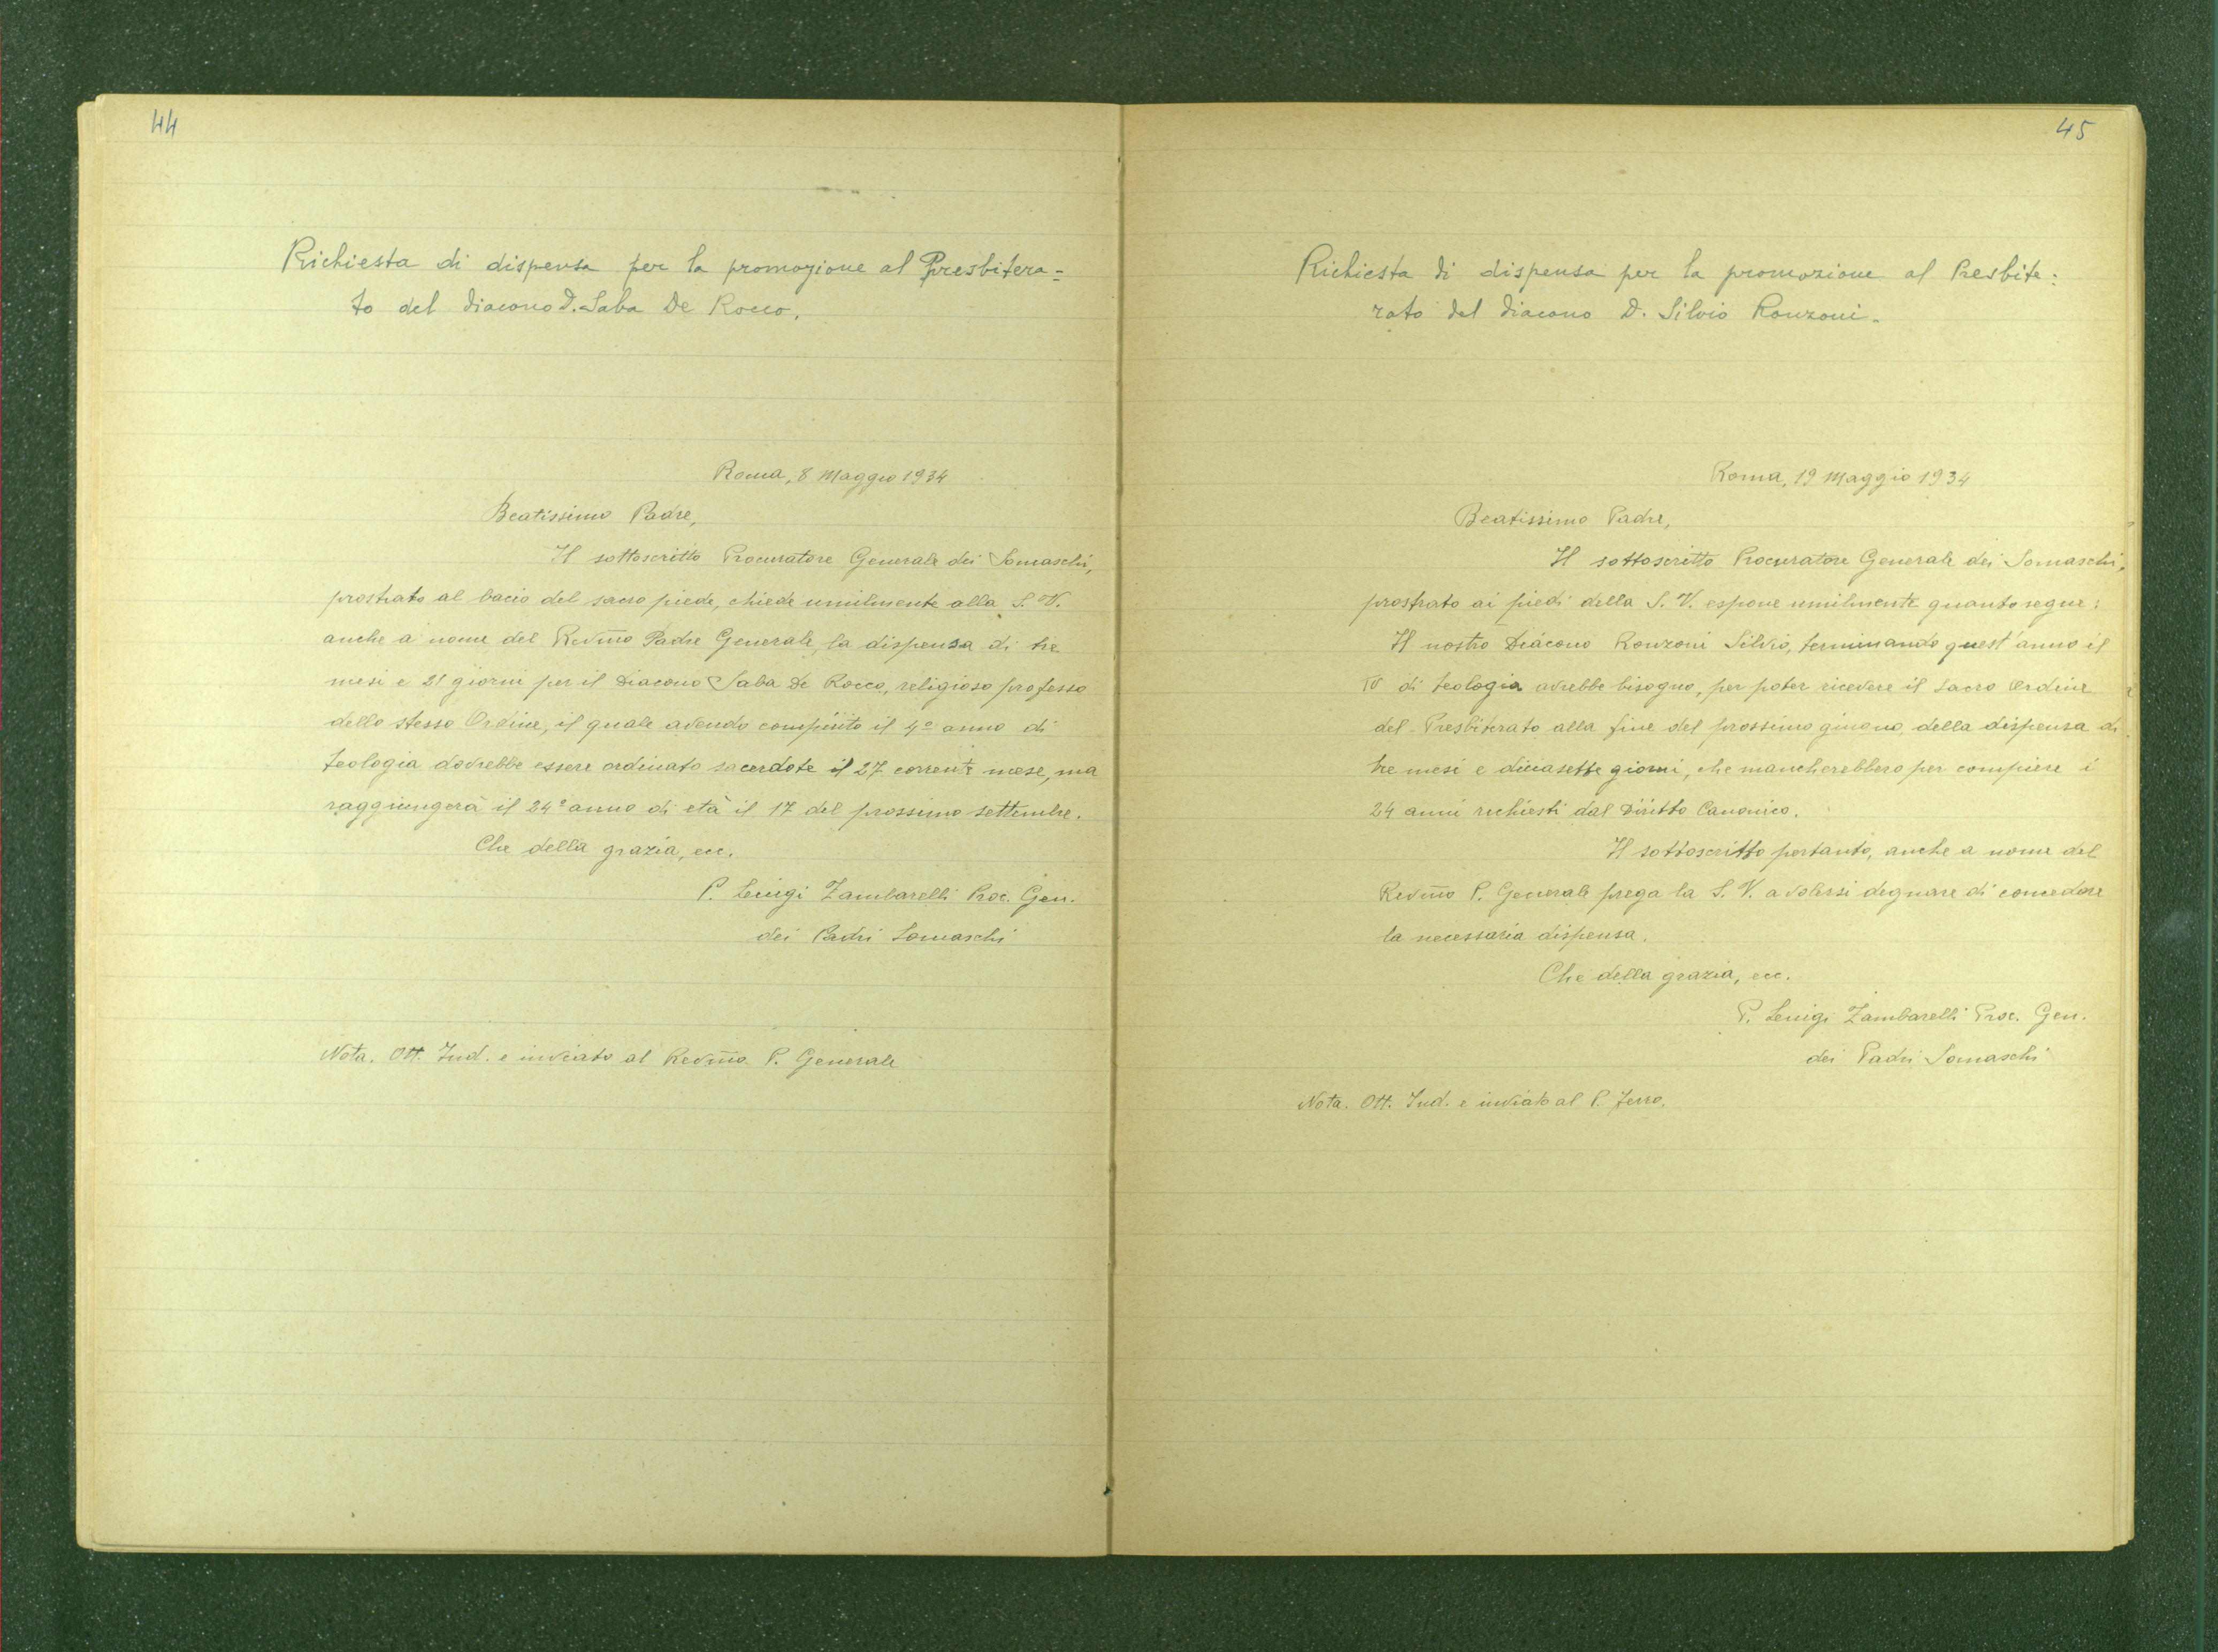 44
Richiesta di dispensa per la promozione al Presbitera=
to del diacono D. Saba De Rocco.
Roma, 8 Maggio 1934
Beatissimo Padre,
Il sottoscritto Procuratore Generale dei Somaschi,
prostrato al bacio del sacro piede, chiede umilmente alla S. V.
anche a nome del Revm̃o Padre Generale, la dispensa di tre
mesi e 21 giorni per il Diacono Saba De Rocco, religioso professo
dello stesso Ordine, il quale avendo compiuto il 4º anno di
teologia dovrebbe essere ordinato sacerdote il 27 corrente mese, ma
raggiungerà il 24º anno di età il 17 del prossimo settembre.
Che della grazia, ecc.
P. Luigi Zambarelli Proc. Gen.
dei Padri Somaschi
Nota. Ott. Ind. e inviato al Revm̃o P. Generale
45
Richiesta di dispensa per la promozione al Presbite:
rato del diacono D. Silvio Ronzoni.
Roma, 19 Maggio 1934
Beatissimo Padre,
Il sottoscritto Procuratore Generale dei Somaschi,
prostrato ai piedi della S. V. espone umilmente quanto segue:
Il nostro Diácono Ronzoni Silvio, terminando quest'anno il
IV di teologia avrebbe bisogno, per poter ricevere il Sacro Ordine
del Presbiterato alla fine del prossimo giugno, della dispensa di
tre mesi e diciasette giorni, che mancherebbero per compiere i
24 anni richiesti dal Diritto Canonico.
Il sottoscritto pertanto, anche a nome del
Revm̃o P. Generale prega la S. V. a volersi degnare di concedere
la necessaria dispensa.
Che della grazia, ecc.
P. Luigi Zambarelli Proc. Gen.
dei Padri Somaschi
Nota. Ott. Ind. e inviato al P. Ferro.